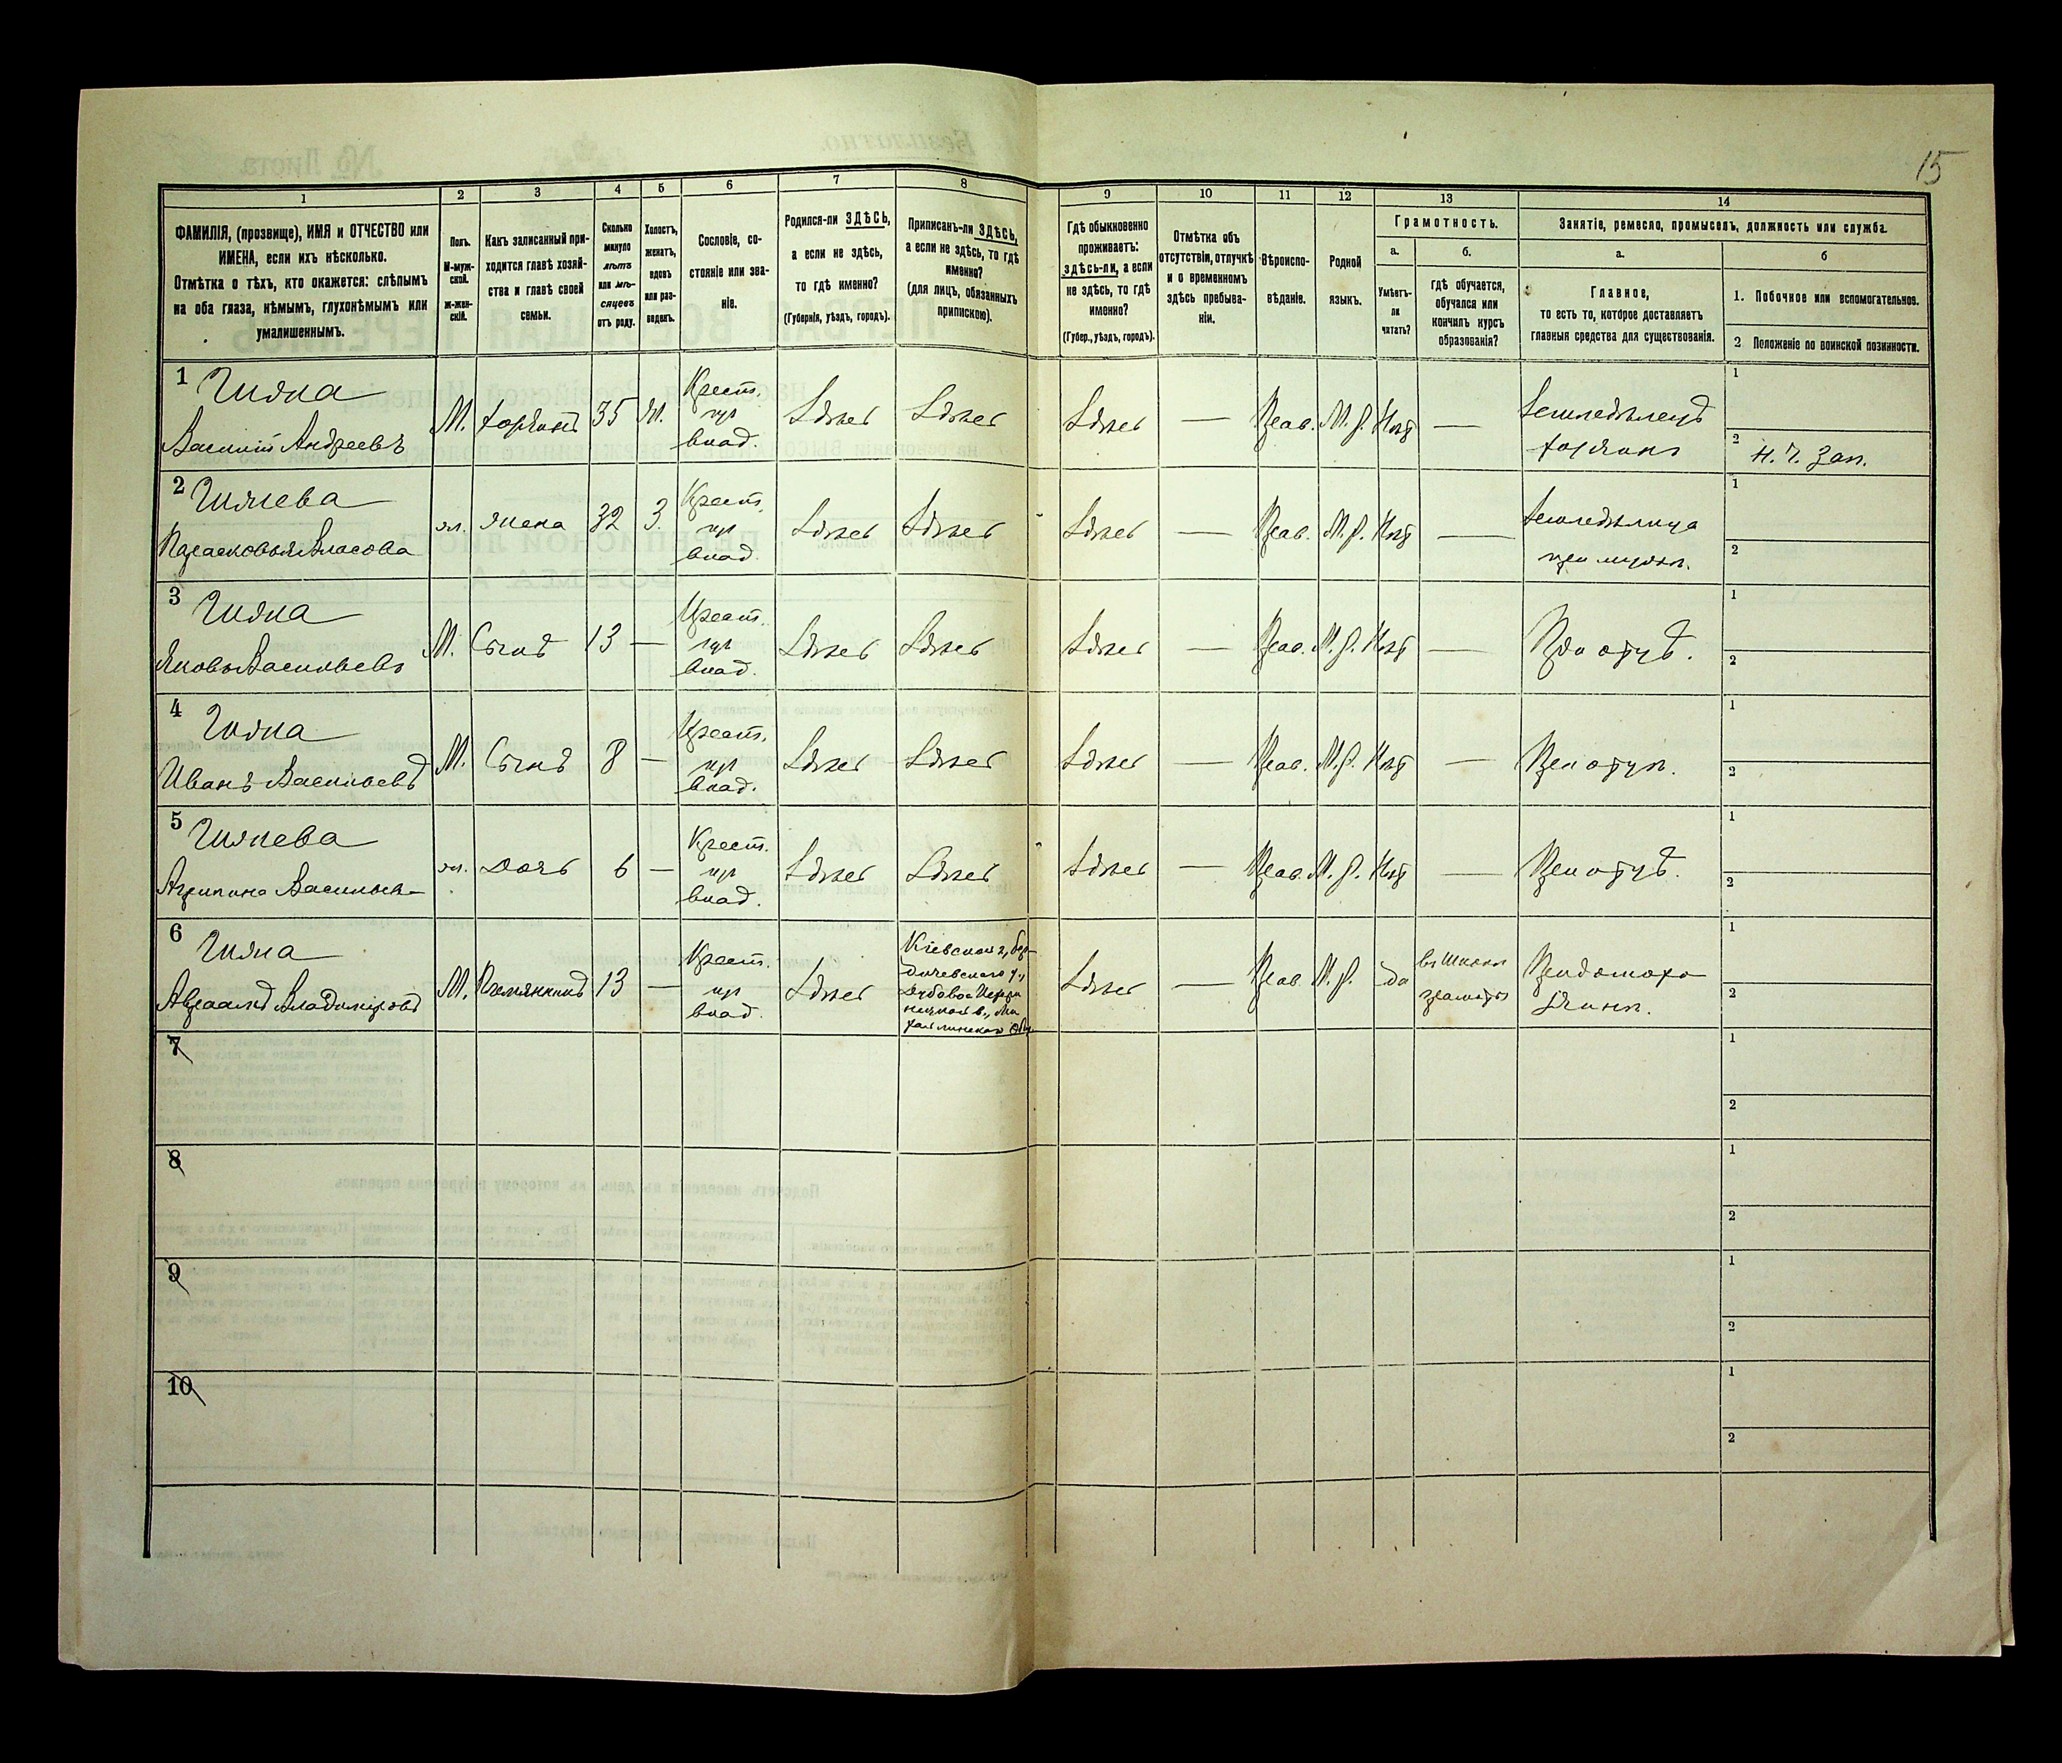 15
1
2
3
4
5
6
7
8
9
10
11
12
13
14
ФАМИЛІЯ, (прозвище), ИМЯ и ОТЧЕСТВО или
ИМЕНА, если ихъ нѣсколько.
Отмѣтка о тѣхъ, кто окажется: слѣпымъ
на оба глаза, нѣмымъ, глухонѣмымъ или
умалишеннымъ.
Полъ.
М-муж-
ской.
Ж-жен-
скій.
Какъ записанный при-
ходится главѣ хозяй-
ства и главѣ своей
семьи.
Сколько
минуло
лѣтъ
или мѣ-
сяцевъ
отъ роду.
Холостъ,
женатъ,
вдовъ
или раз-
веденъ.
Сословіе, со-
стояніе или зва-
ніе.
Родился-ли ЗДѢСЬ,
а если не здѣсь,
то гдѣ именно?
(Губернія, уѣздъ, городъ).
Приписанъ-ли ЗДѢСЬ,
а если не здѣсь, то гдѣ
именно?
(для лицъ, обязанныхъ
припискою).
Гдѣ обыкновенно
проживаетъ:
здѣсь-ли, а если
не здѣсь, то гдѣ
именно?
(Губер., уѣздъ, городъ).
Отмѣтка объ
отсутствіи, отлучкѣ
и о временномъ
здѣсь пребыва-
ніи.
Вѣроиспо-
вѣданіе.
Родной
языкъ.
Грамотность.
а.
Умѣетъ-
ли
читать?
б.
гдѣ обучается,
обучался или
кончилъ курсъ
образованія?
Занятіе, ремесло, промыселъ, должность или служба.
а.
Главное,
то есть то, которое доставляетъ
главныя средства для существованія.
б
1. Побочное или вспомогательное.
2 Положеніе по воинской повинности.
1
Василій Андреевъ
М.
хозяинъ
35
Ж.
Крест.
влад.
Здѣсь
Здѣсь
Здѣсь
—
Прав.
М. р.
Нѣтъ
—
Земледѣлецъ
хозяинъ
1
2
Н. Ч. Зап.
2
Парасковья Власова
ж.
жена
32
З.
Крест.
влад.
Здѣсь
Здѣсь
Здѣсь
—
Прав.
М. р.
Нѣтъ
—
Земледѣлица
при мужѣ.
1
2
3
Яковъ Васильевъ
М.
Сынъ
13
—
Крест.
влад.
Здѣсь
Здѣсь
Здѣсь
—
Прав.
М. р.
Нѣтъ
—
При отцѣ.
1
2
4
Иванъ Васильевъ
М.
Сынъ
8
—
Крест.
влад.
Здѣсь
Здѣсь
Здѣсь
—
Прав.
М. р.
Нѣтъ
—
При отцѣ.
1
2
5
Агрипина Васильева
ж.
дочь
6
—
Крест.
влад.
Здѣсь
Здѣсь
Здѣсь
—
Прав.
М. р.
Нѣтъ
—
При отцѣ.
1
2
6
Авраамъ Владиміровъ
М.
Племянникъ
13
—
Крест.
влад.
Здѣсь
Кіевской г., Бер-
дичевскаго у.,
Здѣсь
—
Прав.
М. р.
да
въ школѣ
грамоты
1
2
7
1
2
8
1
2
9
1
2
10
1
2